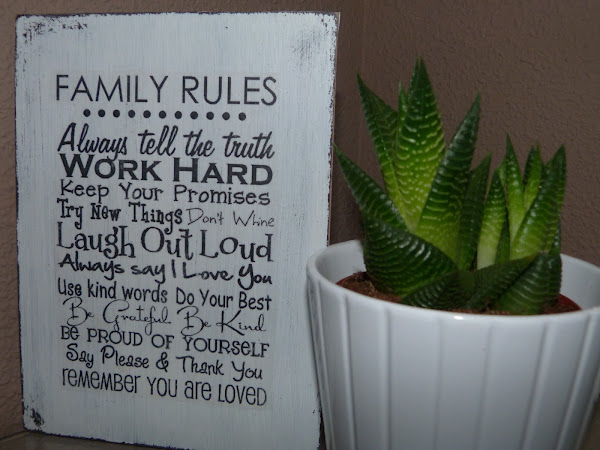 FAMILY RULES
Always tell the truth
WORK HARD
Keep Your Promises
Try New Things Don't Whine
Laugh Out Loud
Always say I Love You
Use kind words Do Your Best
Be Grateful Be Kind
BE PROUD OF YOURSELF
Say Please & Thank You
remember you are loved